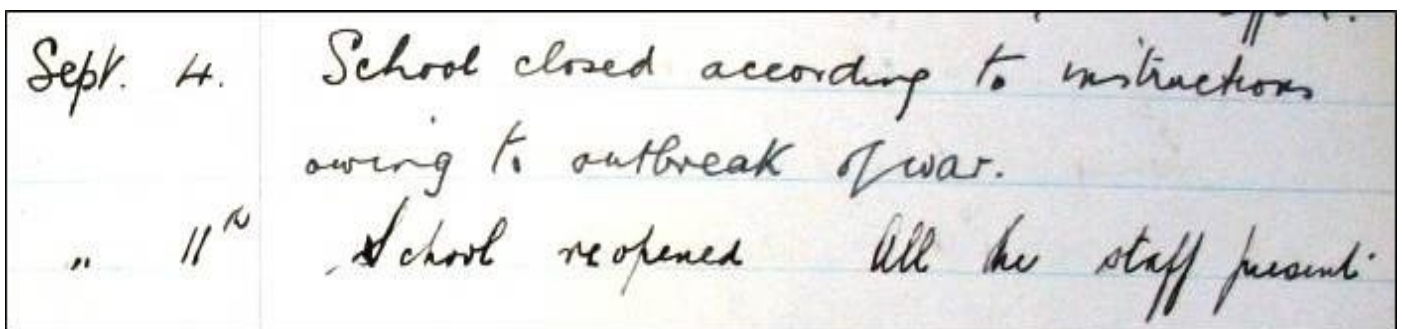 Sept. 4. School closed according to instructions
owing to outbreak of war.
" 11th School reopened All the staff present.